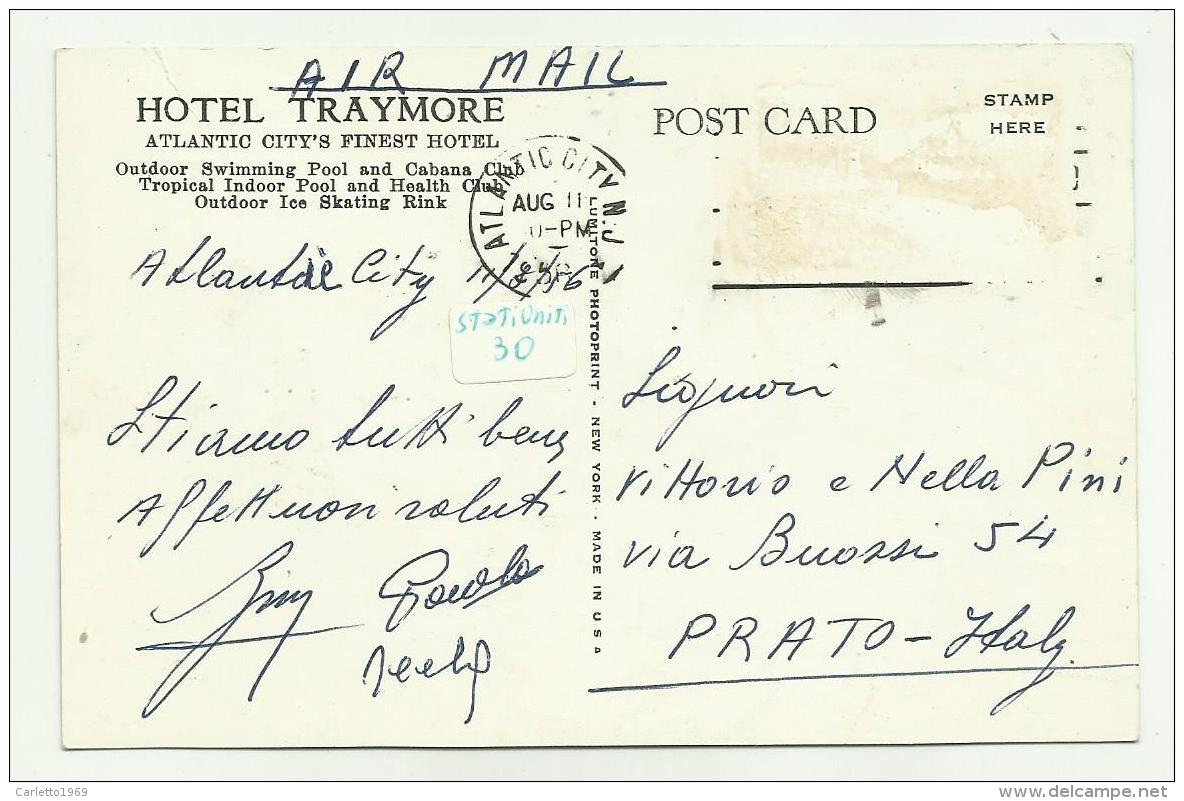 AIR MAIL
HOTEL TRAYMORE
ATLANTIC CITY'S FINEST HOTEL
Outdoor Swimming Pool and Cabana Club
Tropical Indoor Pool and Health Club
Outdoor Ice Skating Rink
POST CARD
STAMP
HERE
ATLANTIC CITY N.J.
AUG 11
-PM
Atlantic City 11/8/56
Stati Uniti
30
Stiamo tutti bene
Affettuosi saluti
Paolo
LUMITONE PHOTOPRINT - NEW YORK - MADE IN U S A
Signori
Vittorio e Nella Pini
via Buozzi 54
PRATO - Italy
Carletto1969
delcampe.net